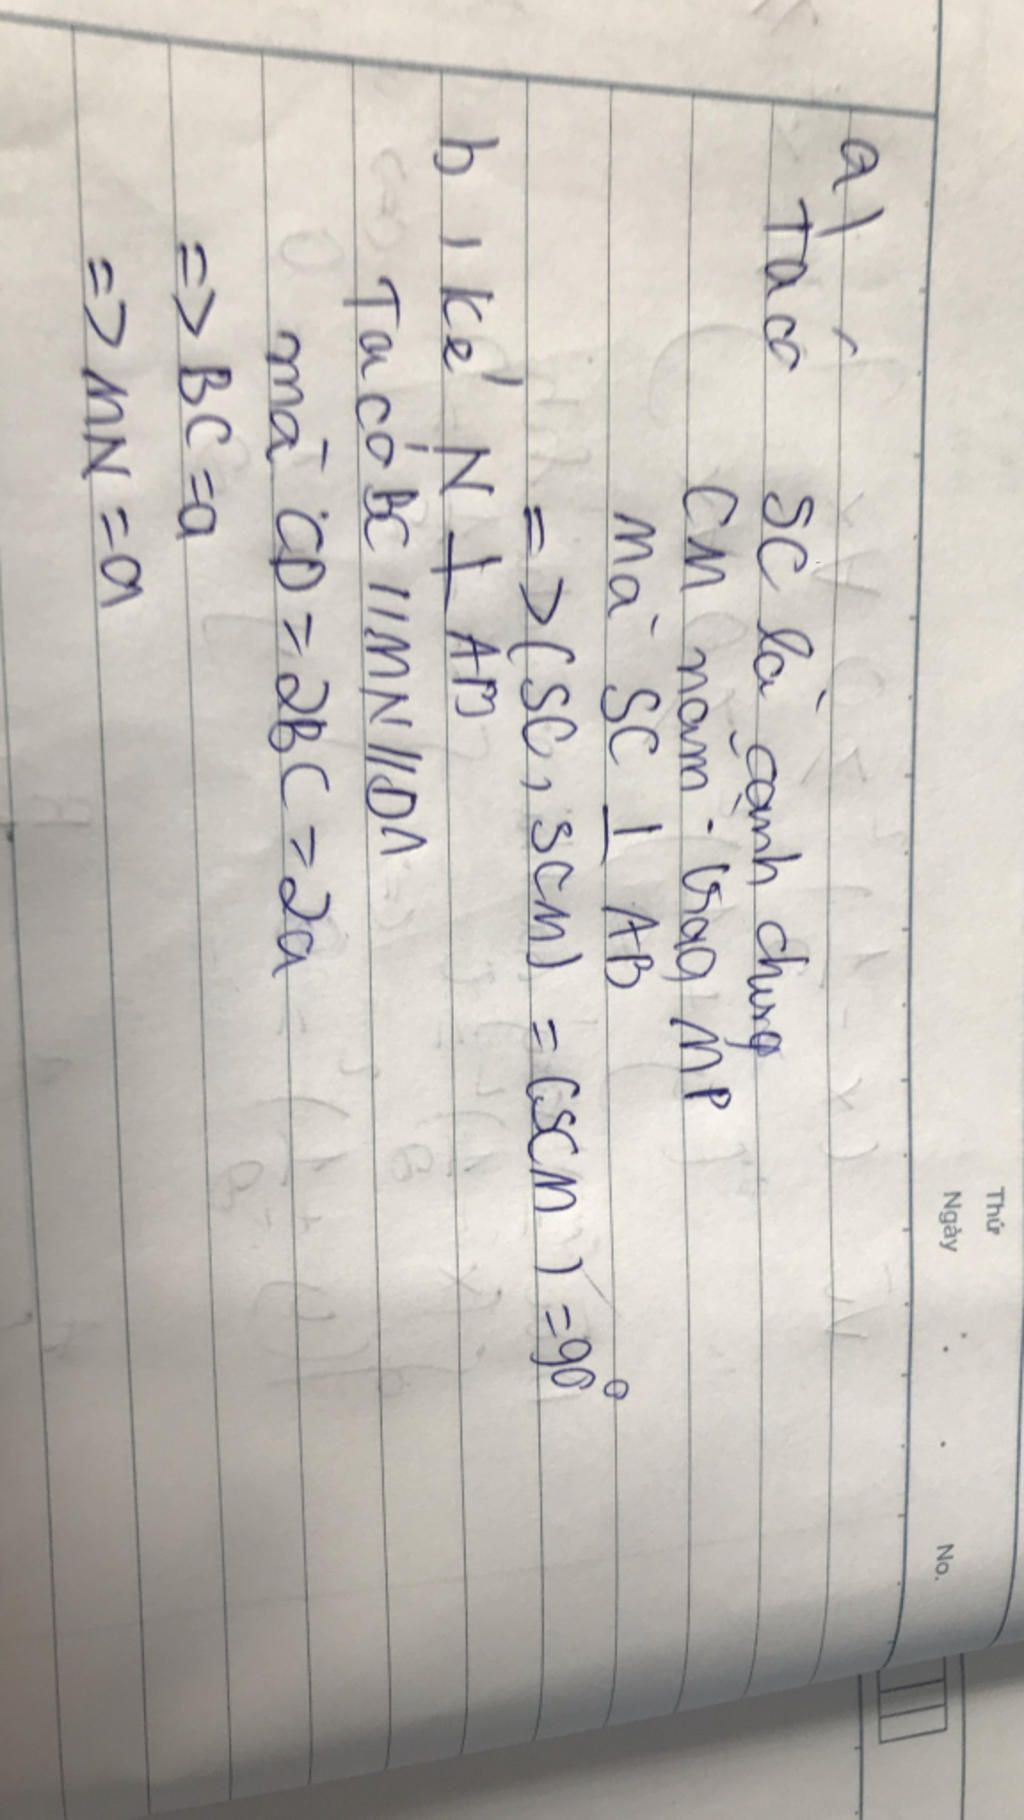 Thứ
Ngày . . No.
a)
Ta có SC là cạnh chung
CM nằm trong MP
mà SC ⊥ AB
=> (SC, SCM) = (SCM) = 90°
b, kẻ N ⊥ AB
Ta có BC // MN // DA
mà CD = 2BC = 2a
=> BC = a
=> MN = a